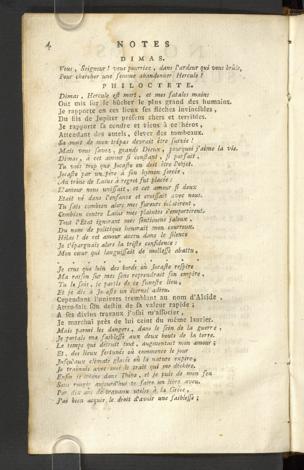 4 NOTES
DIMAS.
Vous, Seigneur ! vous pourriez, dans l'ardeur qui vous brûle,
Pour chercher une femme abandonner Hercule ?
PHILOCTETE.
Dimas, Hercule est mort, et mes fatales mains
Ont mis sur le bûcher le plus grand des humains.
Je rapporte en ces lieux ses flèches invincibles,
Du fils de Jupiter présens chers et terribles.
Je rapporte sa cendre et viens à ce héros,
Attendant des autels, élever des tombeaux.
Sa mort de mon trépas devrait être suivie :
Mais vous savez, grands Dieux, pour qui j'aime la vie.
Dimas, à cet amour si constant, si parfait,
Tu vois trop que Jocaste en doit être l'objet.
Jocaste par un père à son hymen forcée,
Au trône de Laïus à regret fut placée :
L'amour nous unissait, et cet amour si doux
Etait né dans l'enfance et croissait avec nous.
Tu sais combien alors mes fureurs éclatèrent,
Combien contre Laïus mes plaintes s'emportèrent.
Tout l'Etat ignorant mes sentimens jaloux,
Du nom de politique honorait mon courroux.
Hélas ! de cet amour accru dans le silence
Je t'épargnais alors la triste confidence :
Mon cœur qui languissait de mollesse abattu,
. . . . . . . . . .
Je crus que loin des bords où Jocaste respire
Ma raison sur mes sens reprendrait son empire,
Tu le sais, je partis de ce funeste lieu,
Et je dis à Jocaste un éternel adieu.
Cependant l'univers tremblant au nom d'Alcide,
Attendait son destin de sa valeur rapide ;
A ses divins travaux j'osai m'associer,
Je marchai près de lui ceint du même laurier.
Mais parmi les dangers, dans le sein de la guerre,
Je portais ma faiblesse aux deux bouts de la terre.
Le temps qui détruit tout, augmentait mon amour ;
Et, des lieux fortunés où commence le jour
Jusqu'aux climats glacés où la nature expire,
Je traînais avec moi le trait qui me déchire.
Enfin je viens dans Thèbe, et je puis de mon feu
Sans rougir aujourd'hui te faire un libre aveu.
Par dix ans de travaux utiles à la Grèce,
J'ai bien acquis le droit d'avoir une faiblesse ;